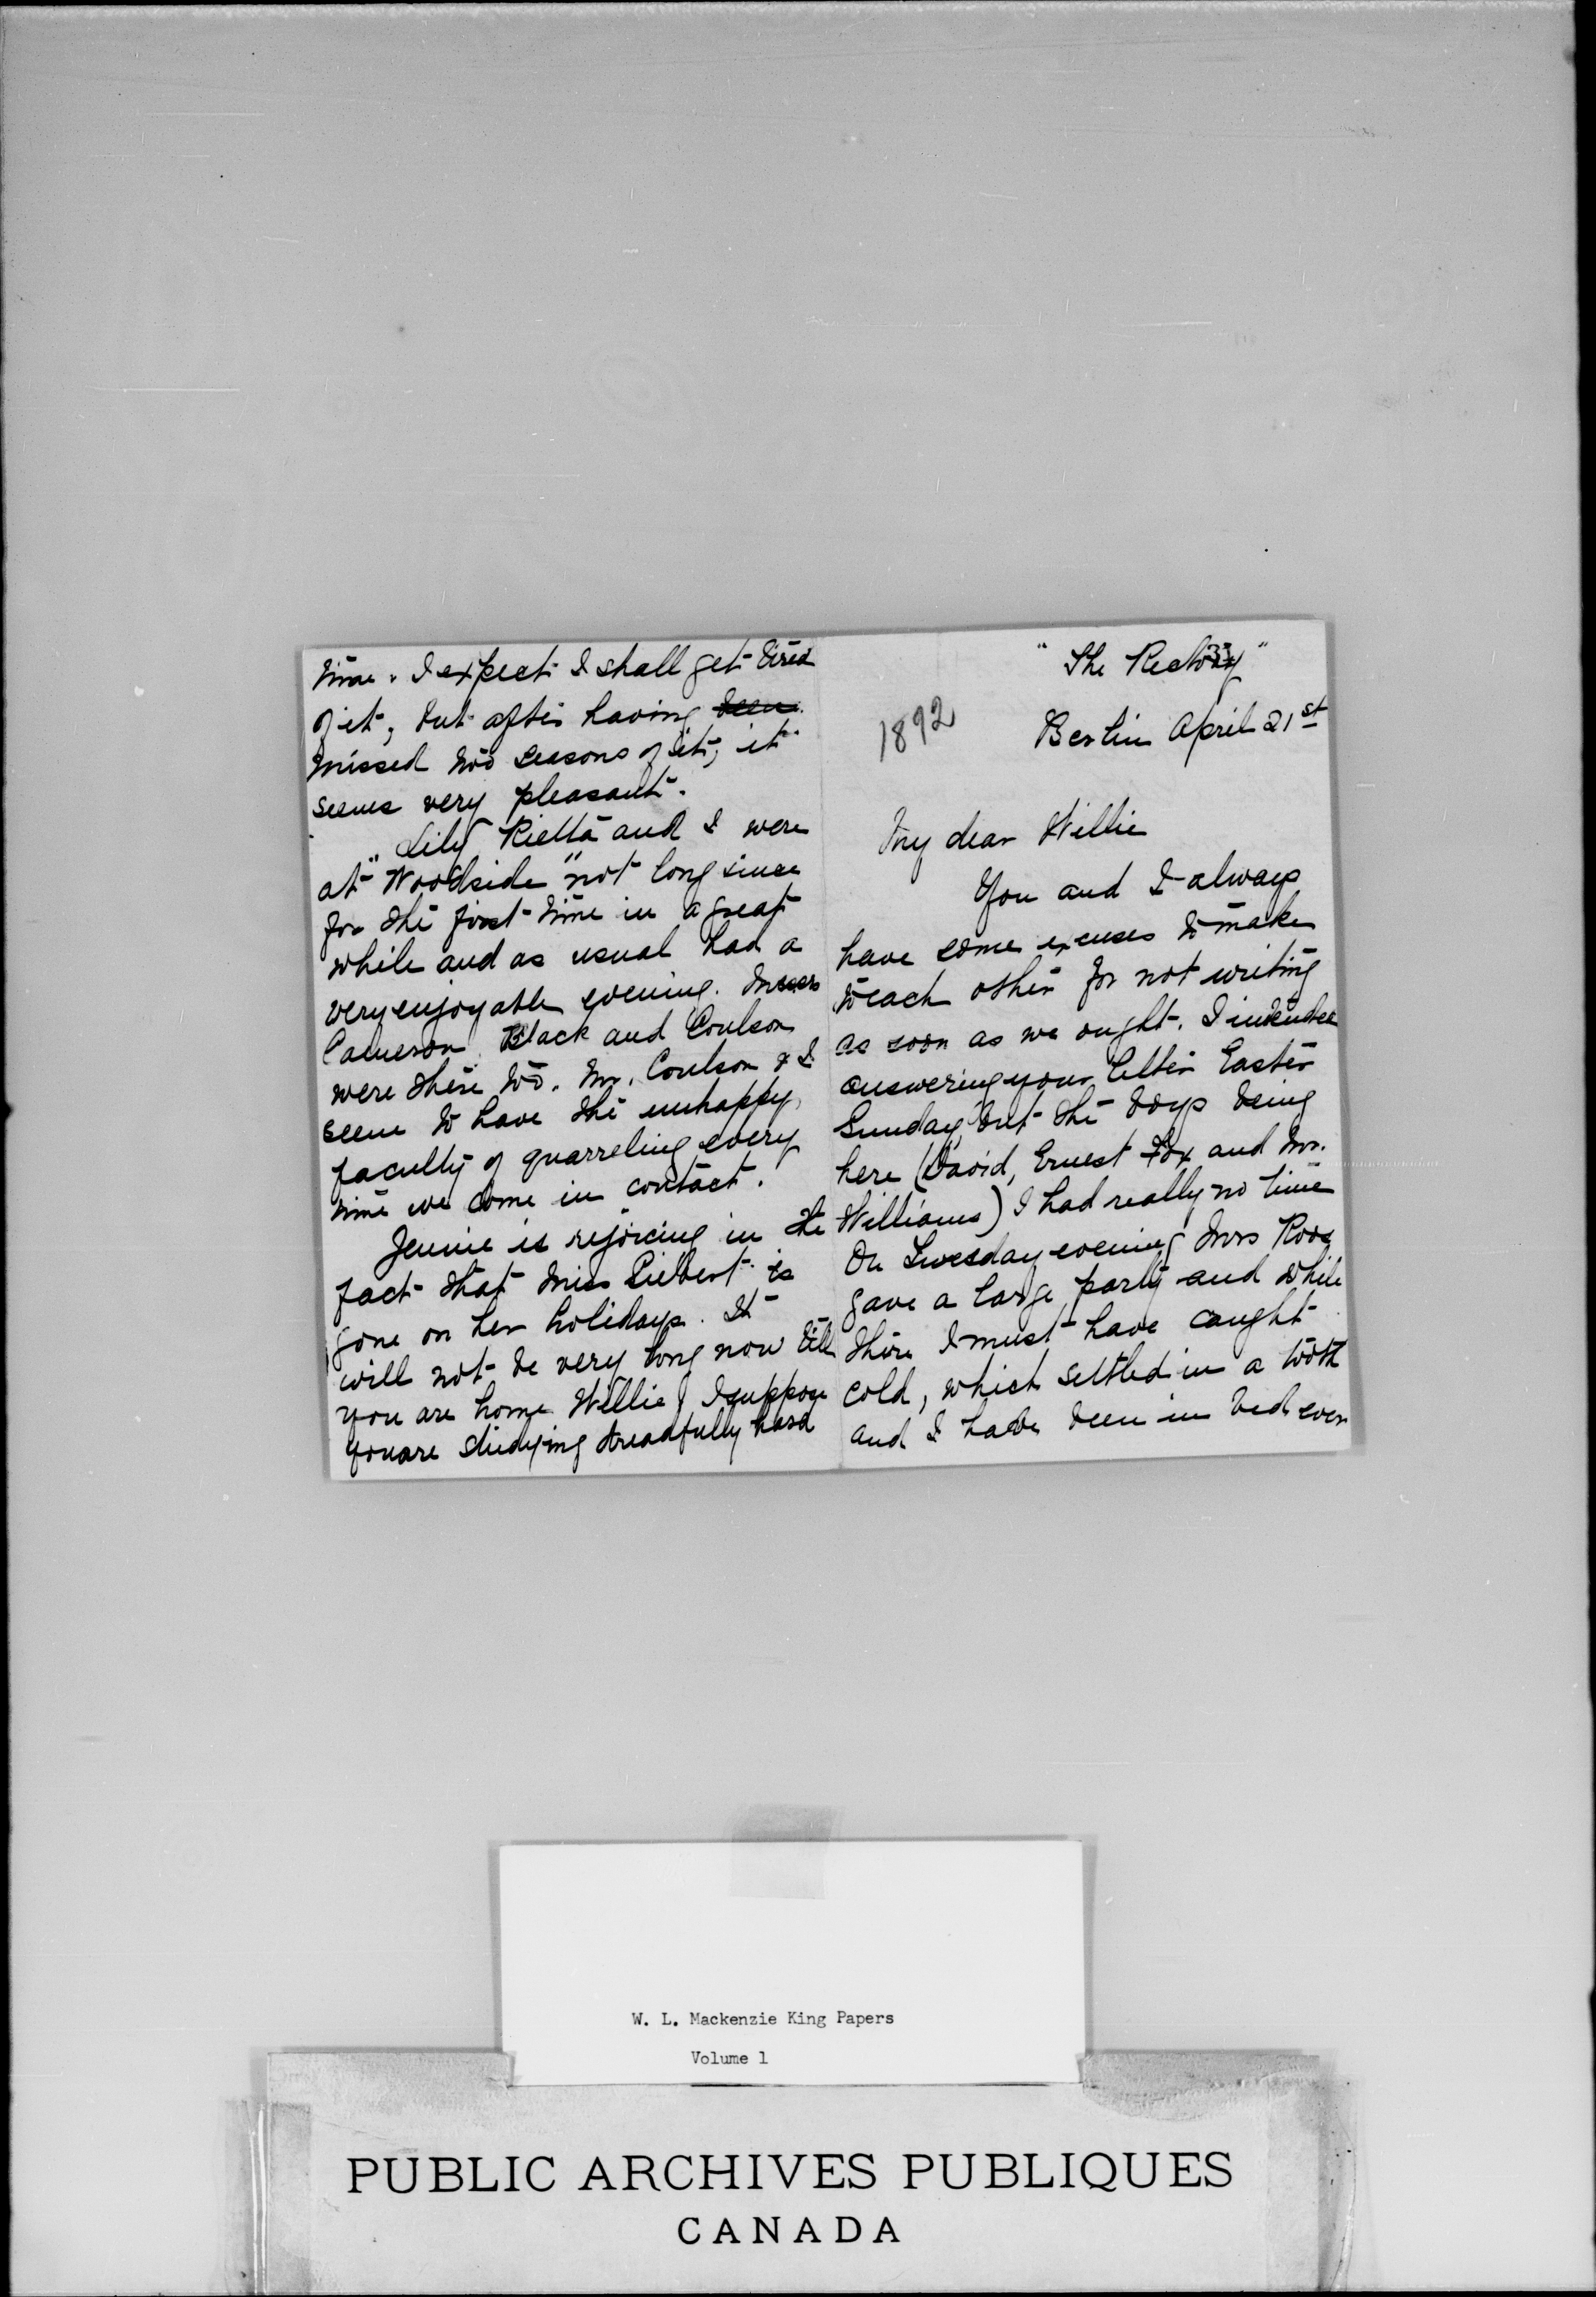 time. I expect I shall get tired
of it, but after having been
missed two seasons of it, it
seems very pleasant.
Lily Rietta and I were
at "Woodside" not long since
for the first time in a great
while and as usual had a
very enjoyable evening. Messrs
Cameron Black and Coulson
were there too. Mr. Coulson & I
seem to have the unhappy
faculty of quarreling every
time we come in contact.
Jennie is rejoicing in the
fact that Miss Siebert is
gone on her holidays. It
will not be very long now till
you are home Willie. I suppose
you are studying dreadfully hard
"The Rectory"
1892
Berlin April 21st
My dear Willie
You and I always
have some excuses to make
to each other for not writing
as soon as we ought. I intended
answering your letter Easter
Sunday, but the boys being
here (David, Ernest Fox and Mr.
Williams) I had really no time
On Tuesday evening Mrs Roos
gave a large party and while
there I must have caught
cold, which settled in a tooth
and I have been in bed ever
W. L. Mackenzie King Papers
Volume 1
PUBLIC ARCHIVES PUBLIQUES
CANADA